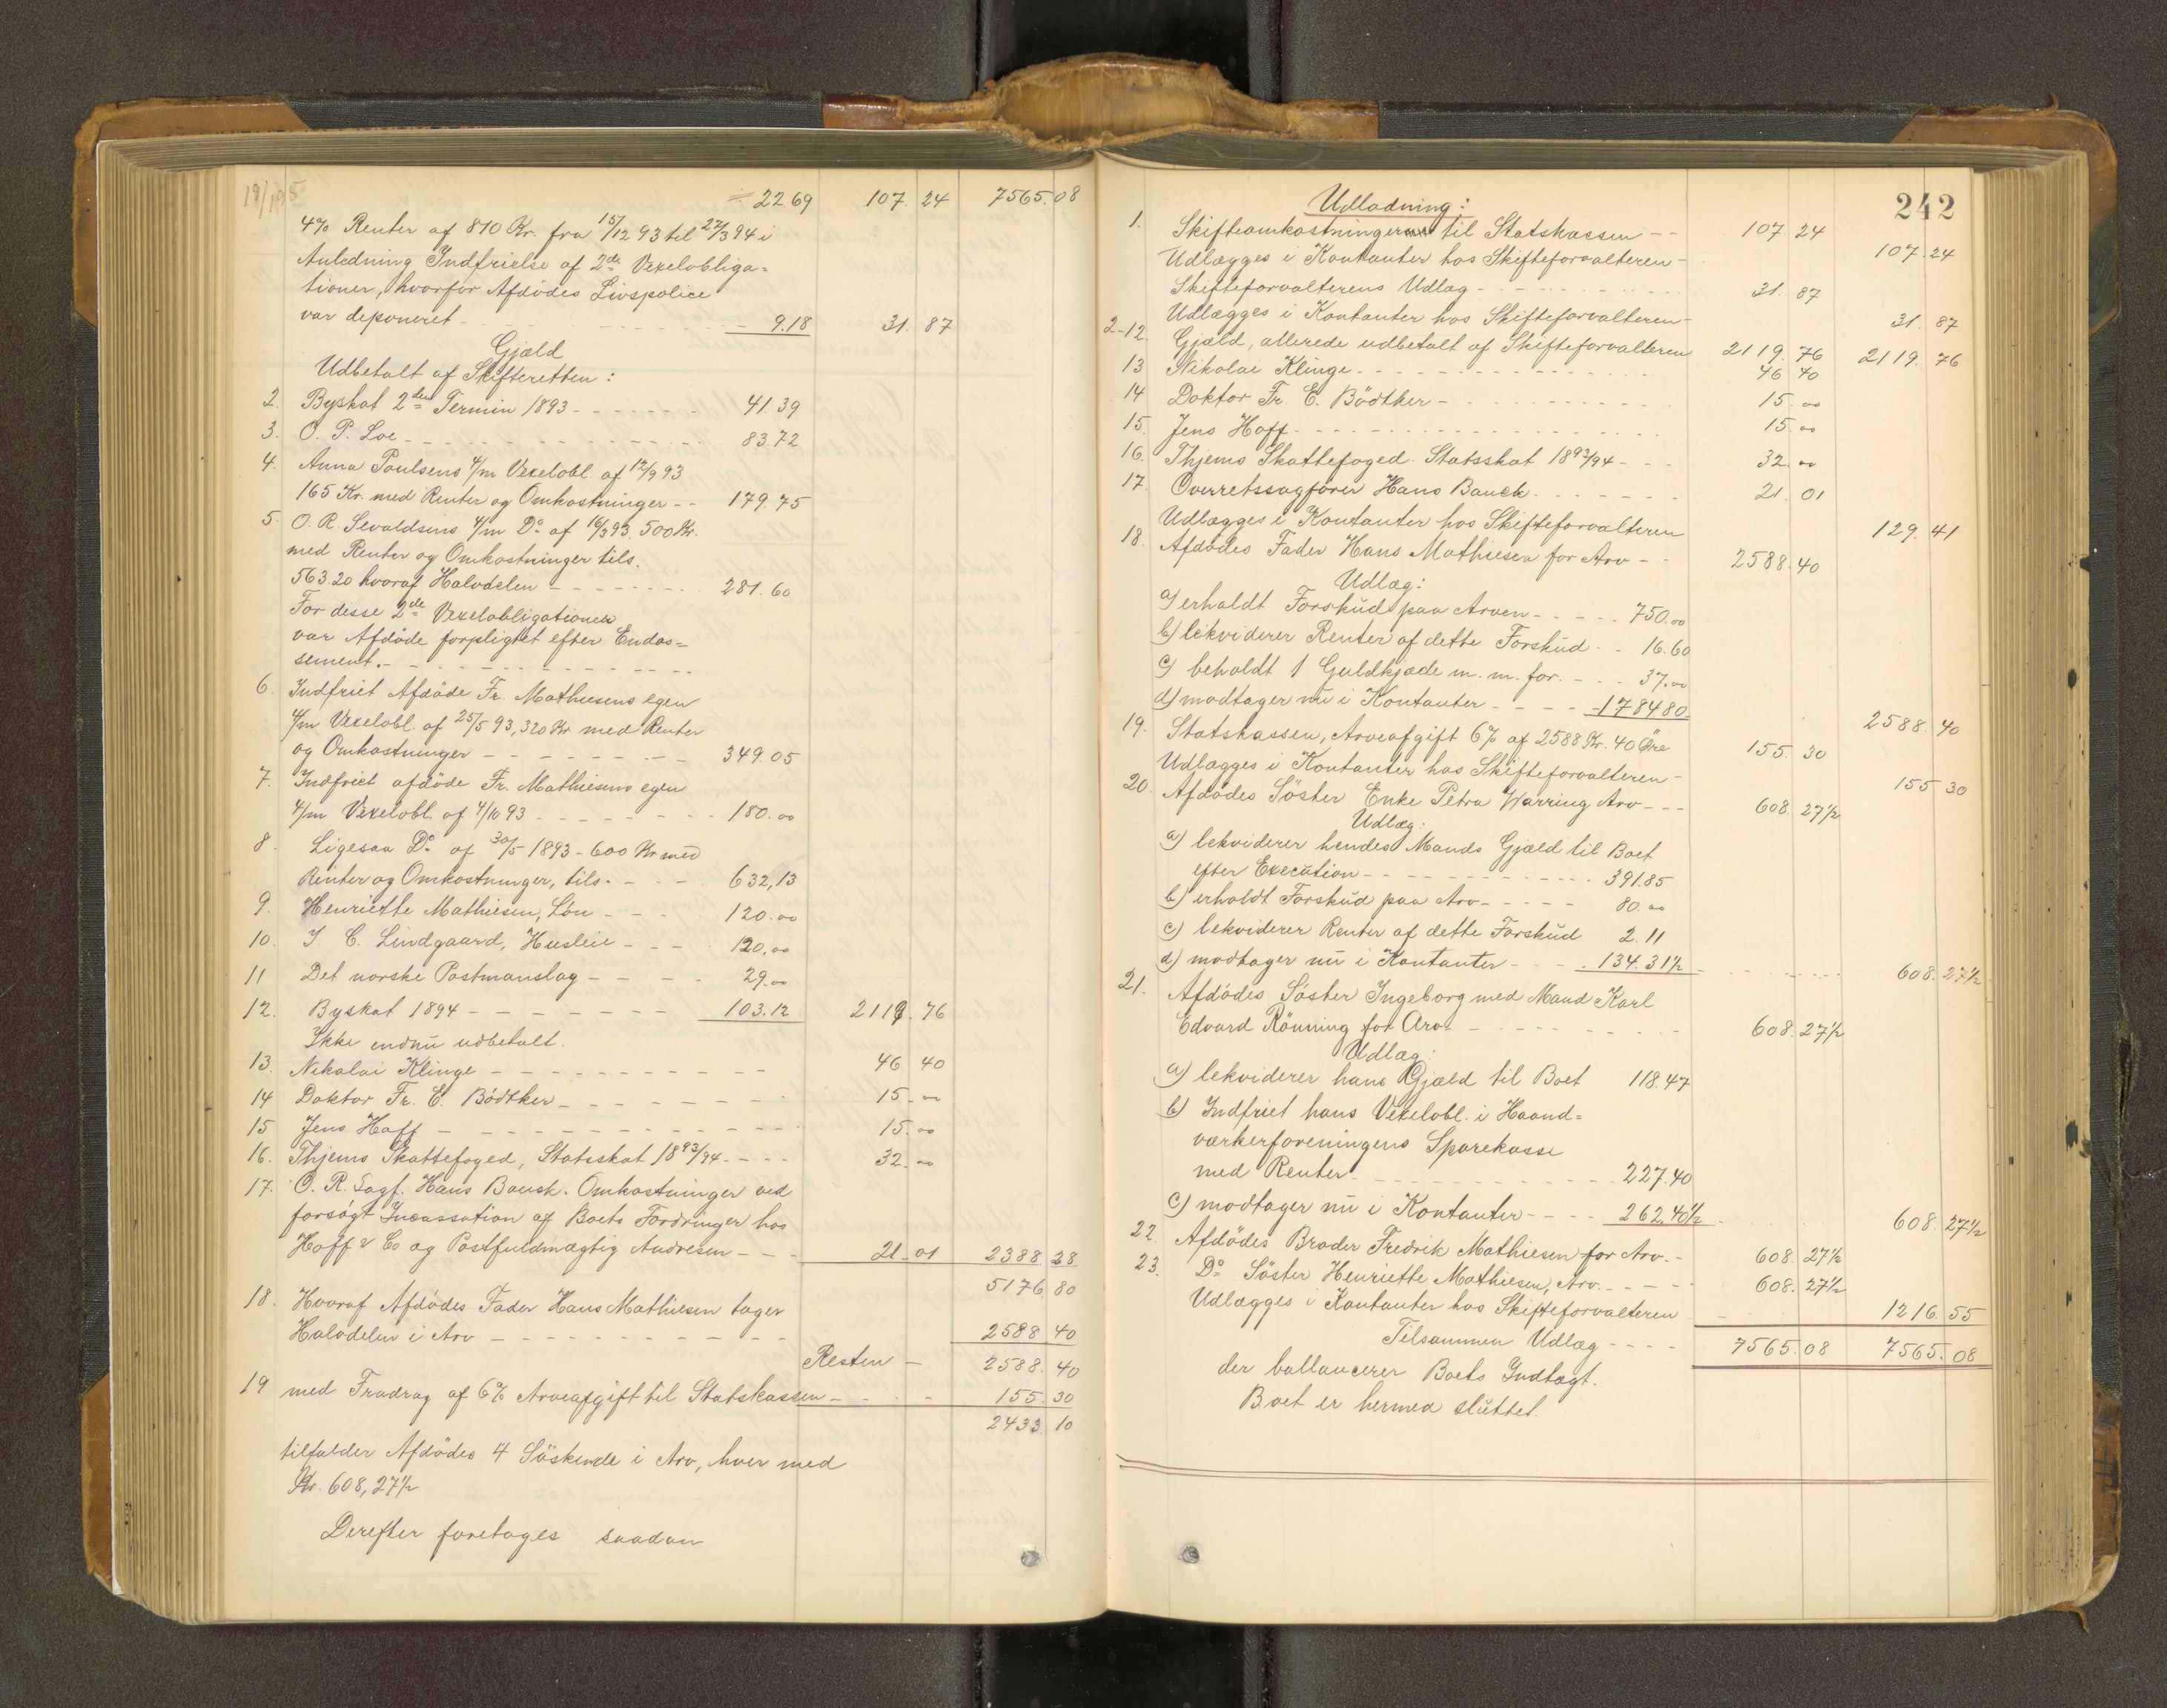 19/10 95
÷ 22.69 107.24 7565.08
4% Renter af 810 Kr. fra 15/12 93 til 27/3 94 i
Anledning Indfrielse af 2de Vexelobliga=
tioner, hvorfor Afdødes Livspolice
var deponeret - - - 9.18 31.87
Gjæld
Udbetalt af Skifteretten:
2. Byskat 2den Termin 1893 - - - 41.39
3. O. P. Loe - - - 83.72
4. Anna Poulsens 4/m Vexelobl. af 12/9 93
165 Kr. med Renter og Omkostninger - - 179.75
5. O. R. Sevaldsens 4/m Do af 16/3 93. 500 Kr.
med Renter og Omkostninger tils.
563.20 hvoraf Halvdelen - - - 281.60
For disse 2de Vexelobligationer
var Afdøde forpligtet efter Endos=
sement. - - -
6. Indfriet Afdøde Fr. Mathiesens egen
4/m Vexelobl. af 25/5 93, 320 Kr med Renter
og Omkostninger - - - 349.05
7. Indfriet afdøde Fr. Mathiesens egen
4/m Vexelobl. af 4/10 93 - - - 180.00
8. Ligesaa Do af 30/5 1893 - 600 Kr med
Renter og Omkostninger, tils. - - - 632,13
9. Henriette Mathiesen, Løn - - - 120.00
10. J. C. Lindgaard, Husleie - - - 120.00
11 Det norske Postmanslag - - - 29.00
12. Byskat 1894 - - - 103.12 2119.76
Ikke endnu udbetalt.
13. Nikolai Klinge - - - 46 40
14 Doktor Fr. E. Bødtker - - - 15.00
15 Jens Hoff - - - 15.00
16. Thjems Skattefoged, Statsskat 1893/94 - - - 32.00
17. O. R. Sagf. Hans Bauck. Omkostninger ved
forsøgt Incassation af Boets Fordringer hos
Hoff & Co og Postfuldmægtig Andresen - - - 21.01 2388 28
5176 80
18. Hvoraf Afdødes Fader Hans Mathiesen tager
Halvdelen i Arv - - - 2588 40
Resten - 2588.40
19 med Fradrag af 6% Arveafgift til Statskassen - - - 155.30
2433 10
tilfalder Afdødes 4 Søskende i Arv, hver med
Kr. 608,27½
Derefter foretages saadan
242
Udlodning:
1. Skifteomkostningerne til Statskassen - - 107.24
Udlægges i Kontanter hos Skifteforvalteren - 107.24
Skifteforvalterens Udlæg - - - 31.87
Udlægges i Kontanter hos Skifteforvalteren - 31.87
2-12. Gjæld, allerede udbetalt af Skifteforvalteren 2119.76 2119.76
13 Nikolai Klinge - - - 46 40
14 Doktor Fr. E. Bødtker - - - 15.00
15. Jens Hoff - - - 15.00
16. Thjems Skattefoged. Statsskat 1893/94 - - - 32.00
17. Overretssagfører Hans Bauck - - - 21.01
Udlægges i Kontanter hos Skifteforvalteren 129.41
18. Afdødes Fader Hans Mathiesen for Arv - - 2588.40
Udlæg:
a) erholdt Forskud paa Arven - - - 750.00
b) likviderer Renter af dette Forskud - - 16.60
c) beholdt 1 Guldkjæde m. m. for - - - 37.00
d) modtager nu i Kontanter - - - 1784 80 2588.40
19. Statskassen, Arveafgift 6% af 2588 Kr. 40 Øre 155.30
Udlægges i Kontanter hos Skifteforvalteren - 155 30
20. Afdødes Søster Enke Petra Warring Arv - - - 608.27½
Udlæg:
a) lekviderer hendes Mands Gjæld til Boet
efter Execution - - - 391.85
b) erholdt Forskud paa Arv - - - 80.00
c) lekviderer Renter af dette Forskud 2.11
d) modtager nu i Kontanter - - - 134.31½ 608.27½
21. Afdødes Søster Ingeborg med Mand Karl
Edvard Rønning for Arv - - - 608.27½
Udlæg:
a) lekviderer hans Gjæld til Boet 118.47
b) Indfriet hans Vexelobl. i Haand=
værkerforeningens Sparekasse
med Renter - - - 227.40
c) modtager nu i Kontanter - - - 262.40½ 608.27½
22. Afdødes Broder Fredrik Mathiesen for Arv. - 608.27½
23. Do Søster Henriette Mathiesen, Arv. - - - 608.27½
Udlægges i Kontanter hos Skifteforvalteren 1216.55
Tilsammen Udlæg - - - 7565.08 7565.08
der ballancerer Boets Indtægt.
Boet er hermed sluttet.